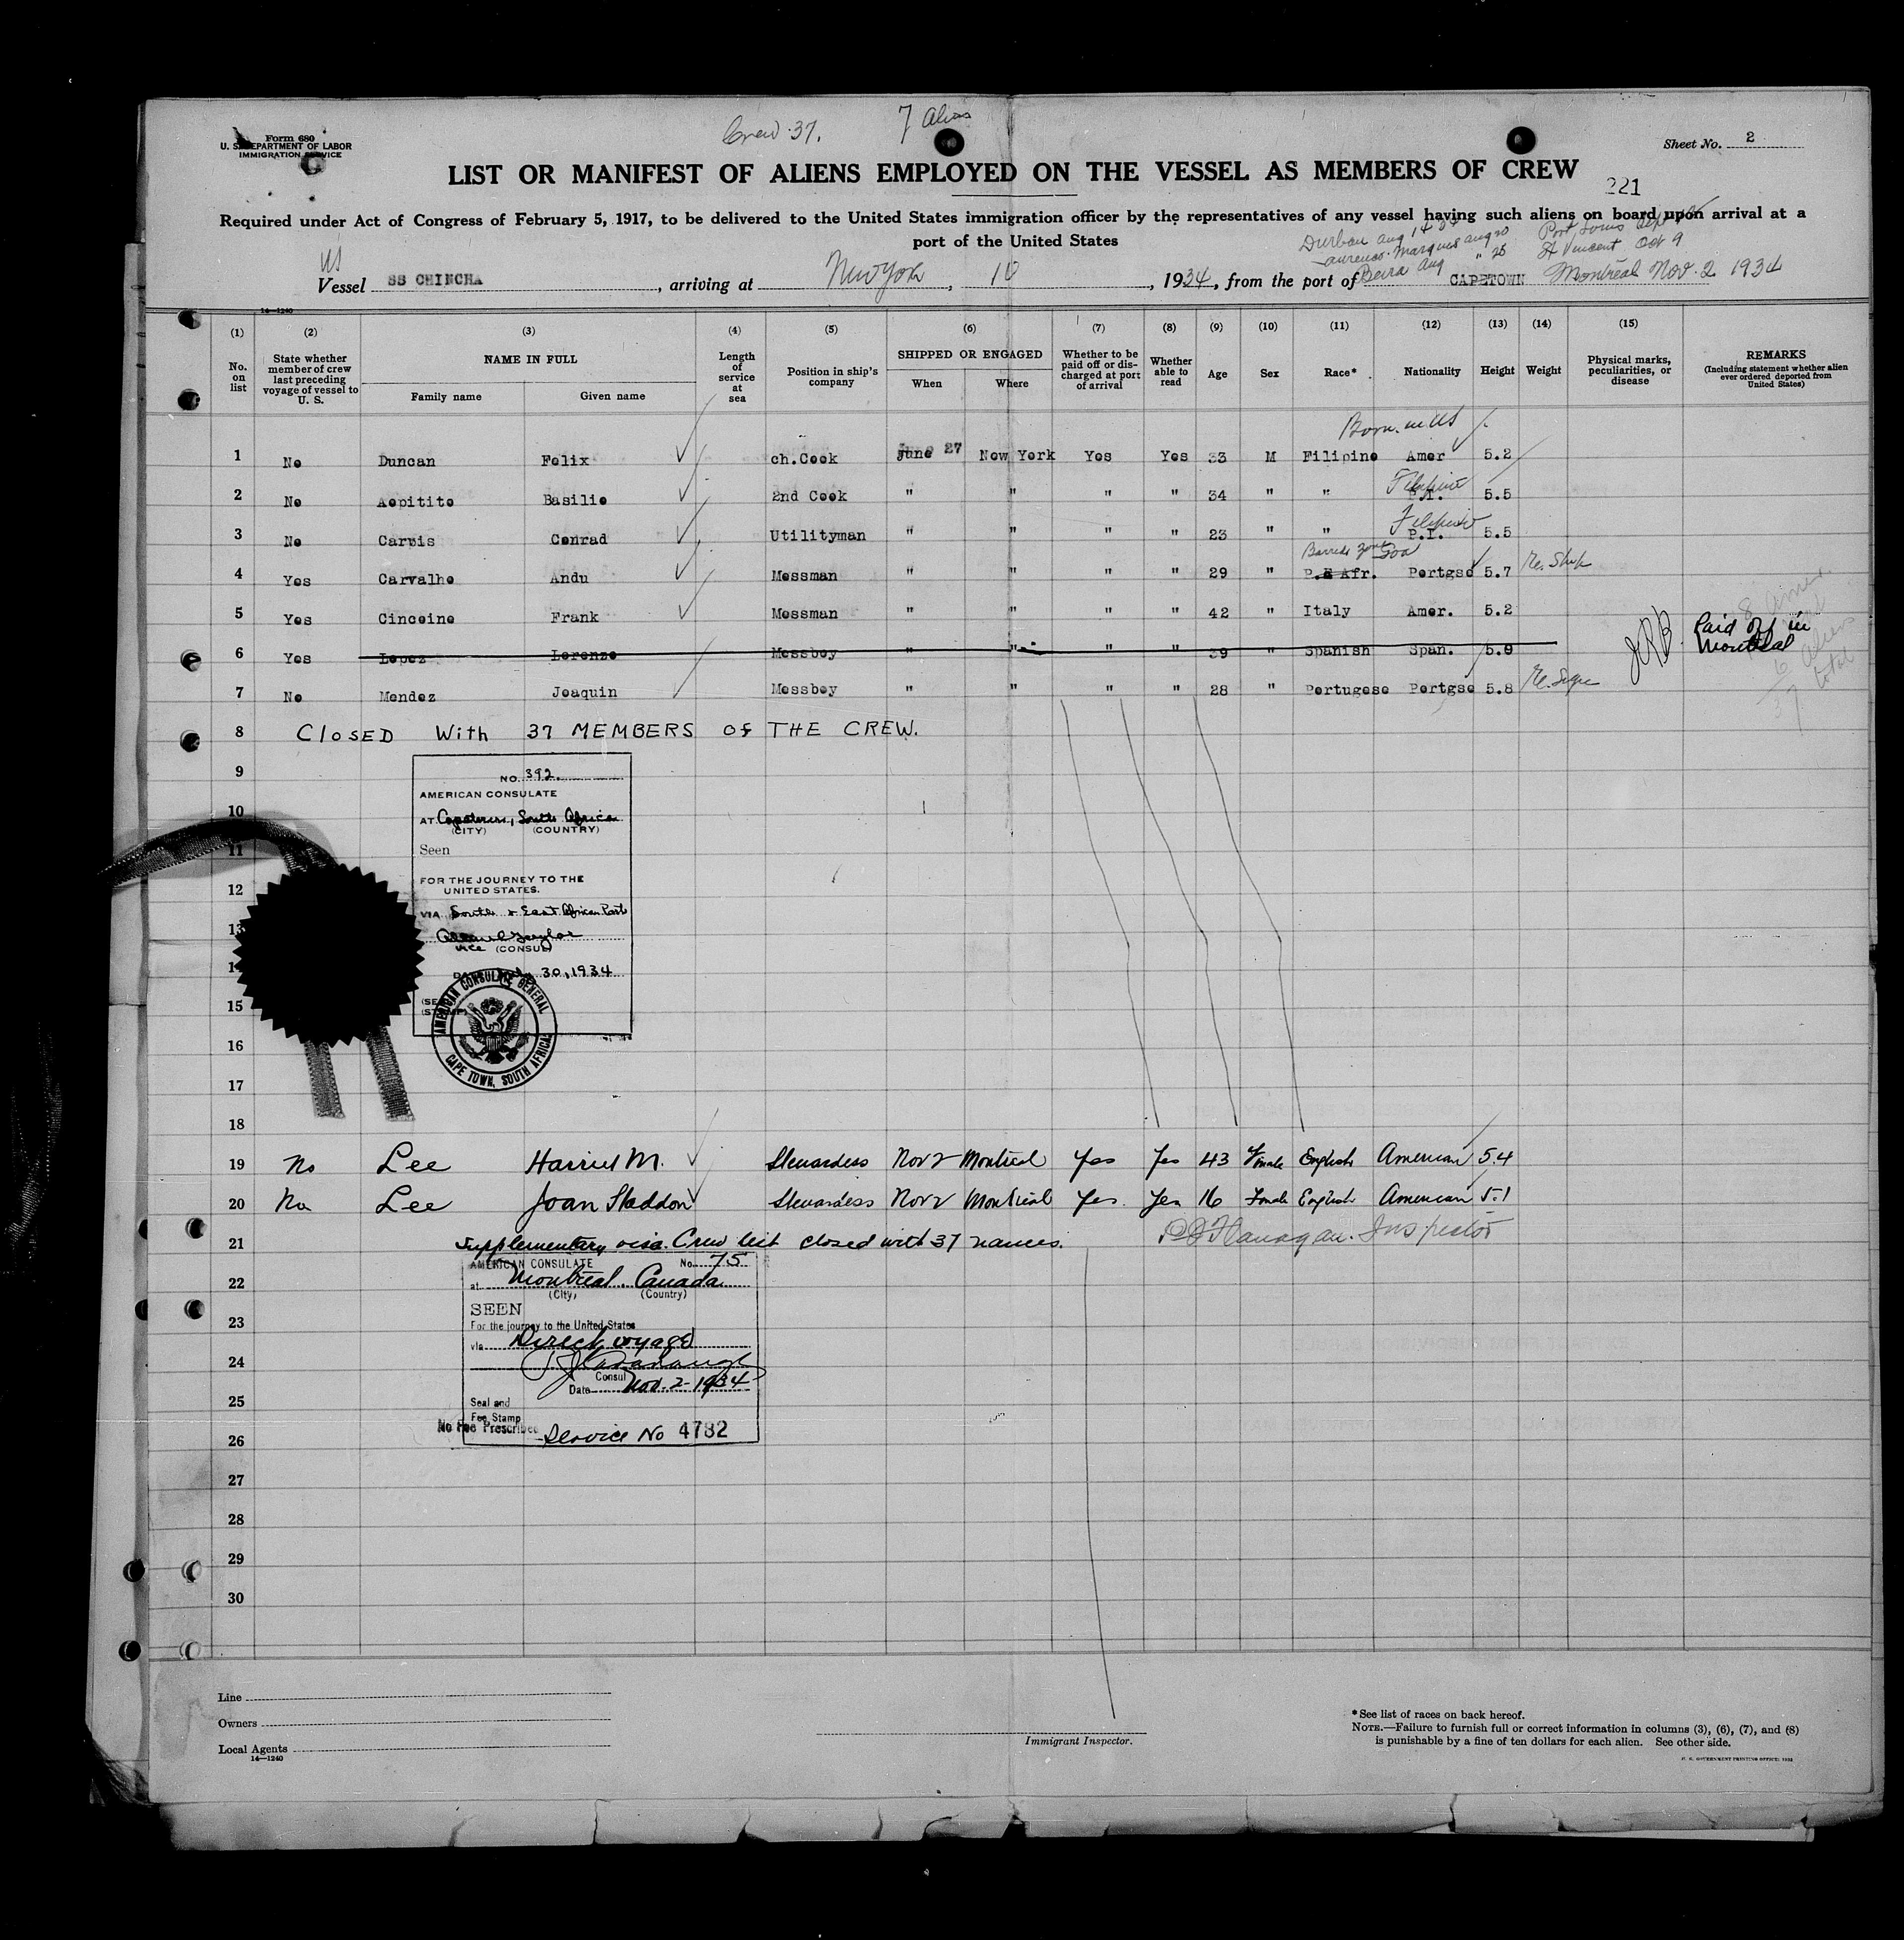 Crew 37. 7 Aliens
Form 680
U. S. DEPARTMENT OF LABOR
IMMIGRATION SERVICE
Sheet No. 2
LIST OR MANIFEST OF ALIENS EMPLOYED ON THE VESSEL AS MEMBERS OF CREW
221
Required under Act of Congress of February 5, 1917, to be delivered to the United States immigration officer by the representatives of any vessel having such aliens on board upon arrival at a
port of the United States
Durban Aug 14 Port Louis Sep
Marques Aug 20 St Vincent Oct 9
US Beira Aug " 25
Vessel SS CHINCHA, arriving at New York, 10, 1934, from the port of CAPETOWN Montreal Nov. 2 1934
14—1240
(1) (2) (3) (4) (5) (6) (7) (8) (9) (10) (11) (12) (13) (14) (15)
No. on list
State whether member of crew last preceding voyage of vessel to U. S.
NAME IN FULL
Family name Given name
Length of service at sea
Position in ship's company
SHIPPED OR ENGAGED
When Where
Whether to be paid off or discharged at port of arrival
Whether able to read
Age Sex Race* Nationality Height Weight
Physical marks, peculiarities, or disease
REMARKS
(Including statement whether alien ever ordered deported from United States)
Born in US
1 No Duncan Felix ch.Cook June 27 New York Yes Yes 33 M Filipino Amer 5.2
Filipino
2 No Aopitito Basilio 2nd Cook " " " " 34 " " P.I. 5.5
Filipino
3 No Carvis Conrad Utilityman " " " " 23 " " P.I. 5.5
Goa
4 Yes Carvalho Andu Messman " " " " 29 " P.E Afr. Portgse 5.7 Re. Ship
5 Yes Cinceino Frank Messman " " " " 42 " Italy Amer. 5.2
6 Yes Lopez Lorenzo Messboy " " " " 39 " Spanish Span. 5.9 JRB Paid off in Montreal
7 No Mendez Joaquin Messboy " " " " 28 " Portugese Portgse 5.8
8 Amer.
6 Aliens
37 total
8 CLOSED With 37 MEMBERS Of THE CREW.
9
NO. 392.
AMERICAN CONSULATE
10
AT Capetown, South Africa
(CITY) (COUNTRY)
11
Seen
12
FOR THE JOURNEY TO THE
UNITED STATES.
VIA South & East African Ports
13
VICE (CONSUL)
30, 1934
15
AMERICAN CONSULATE GENERAL
CAPE TOWN, SOUTH AFRICA
16
17
18
19 No Lee Harriet M. Stewardess Nov 2 Montreal Yes Yes 43 Female English American 5.4
20 No Lee Joan Staddon Stewardess Nov 2 Montreal Yes. Yes 16 Female English American 5.1
21 Supplementary visa. Crew list closed with 37 names. Flanagan. Inspector
AMERICAN CONSULATE No. 75
22 at Montreal, Canada
(City) (Country)
SEEN
23 For the journey to the United States
via Direct voyage
24
Consul
Date Nov. 2 - 1934
25 Seal and
Fee Stamp
No Fee Prescribed
26 Service No 4782
27
28
29
30
Line
Owners
Local Agents
14—1240
Immigrant Inspector.
*See list of races on back hereof.
NOTE.—Failure to furnish full or correct information in columns (3), (6), (7), and (8)
is punishable by a fine of ten dollars for each alien. See other side.
U. S. GOVERNMENT PRINTING OFFICE: 1932